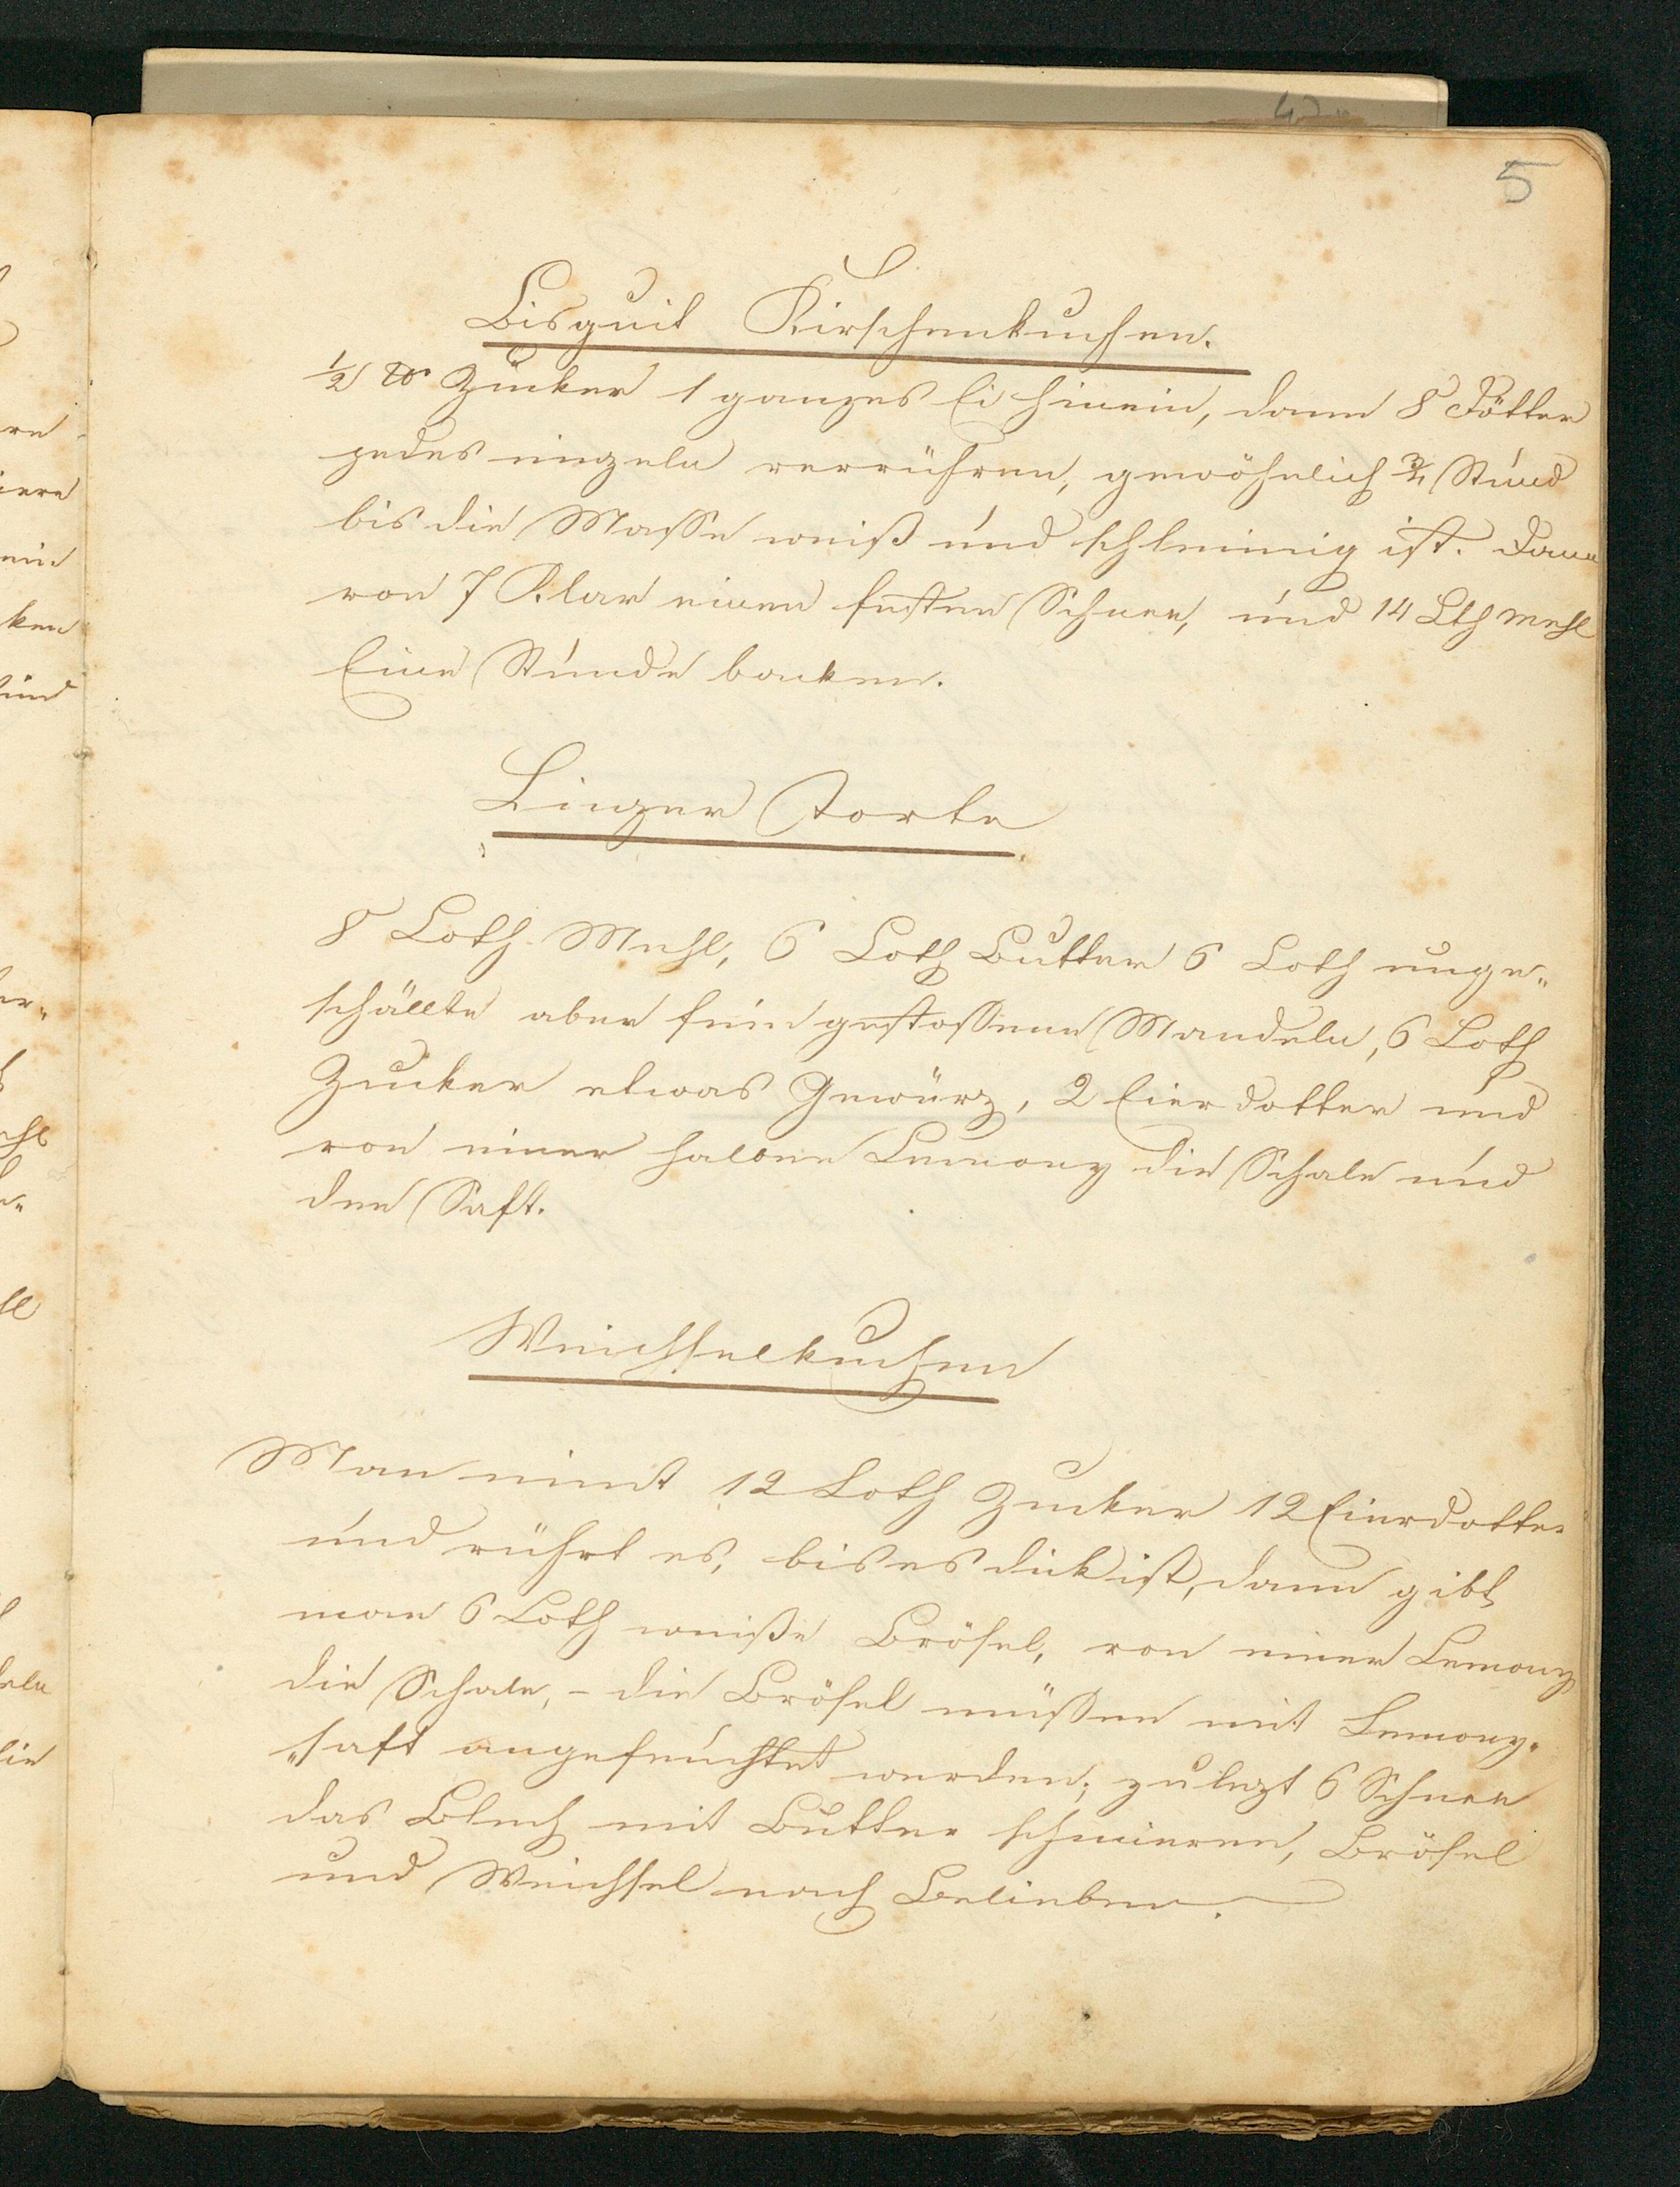 5
Bisquit Kirschenkuchen.
½ ℔ Zucker 1 ganzes Ei hinein, dann 8 Dötter
jedes einzeln verrühren, gewöhnlich ¾ Stund
bis die Masse weiß und schleimig ist. Dann
von 7 Klar einen festen Schnee, und 14 Lth Mehl
Eine Stunde backen.
Linzer Torte
8 Loth Mehl, 6 Loth Butter 6 Loth unge„
schällte aber fein gestossene Mandeln, 6 Loth
Zucker etwas Gewürz, 2 Eier dotter und
von einer halben Lemony die Schale und
den Saft.
Weichselkuchen
Man nimt 12 Loth Zucker 12 Eierdotter
und rührt es, bis es dick ist, dann gibt
man 6 Loth weiße Brösel, von einer Lemony
die Schale, – die Brösel müssen mit Lemony„
„saft angefeuchtet werden; zulezt 6 Schnee
das Blech mit Butter schmieren, Brösel
und Weichsel nach Belieben.